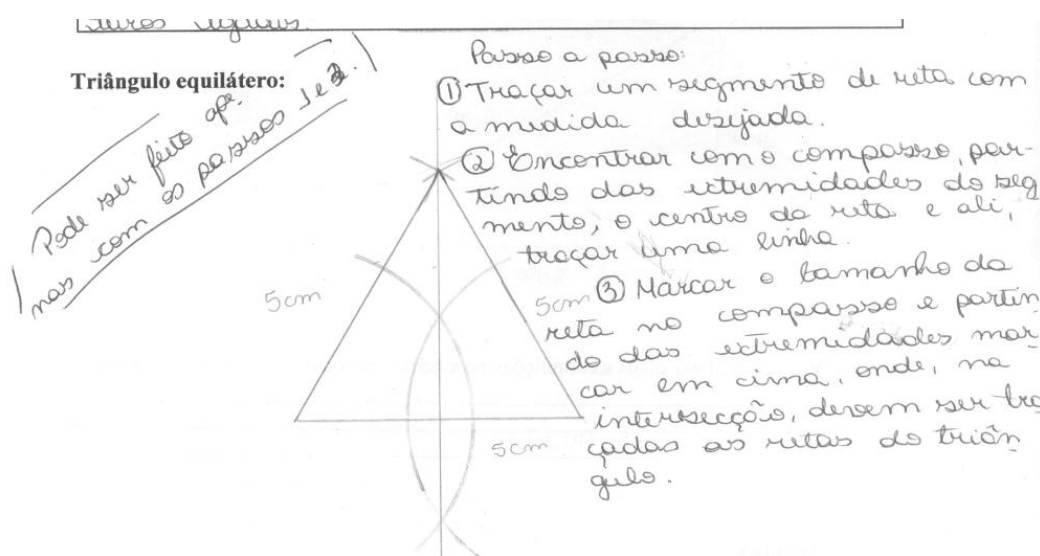 Triângulo equilátero:
Pode ser feito ape-
nas com os passos 1 e 3.
Passo a passo:
① Traçar um segmento de reta com
a medida desejada.
② Encontrar com o compasso, par-
tindo das extremidades do seg
mento, o centro da reta e ali,
traçar uma linha.
③ Marcar o tamanho da
reta no compasso e partin
do das extremidades mar-
car em cima, onde, na
intersecção, devem ser tra
çadas as retas do triân
gulo.
5cm
5cm
5cm